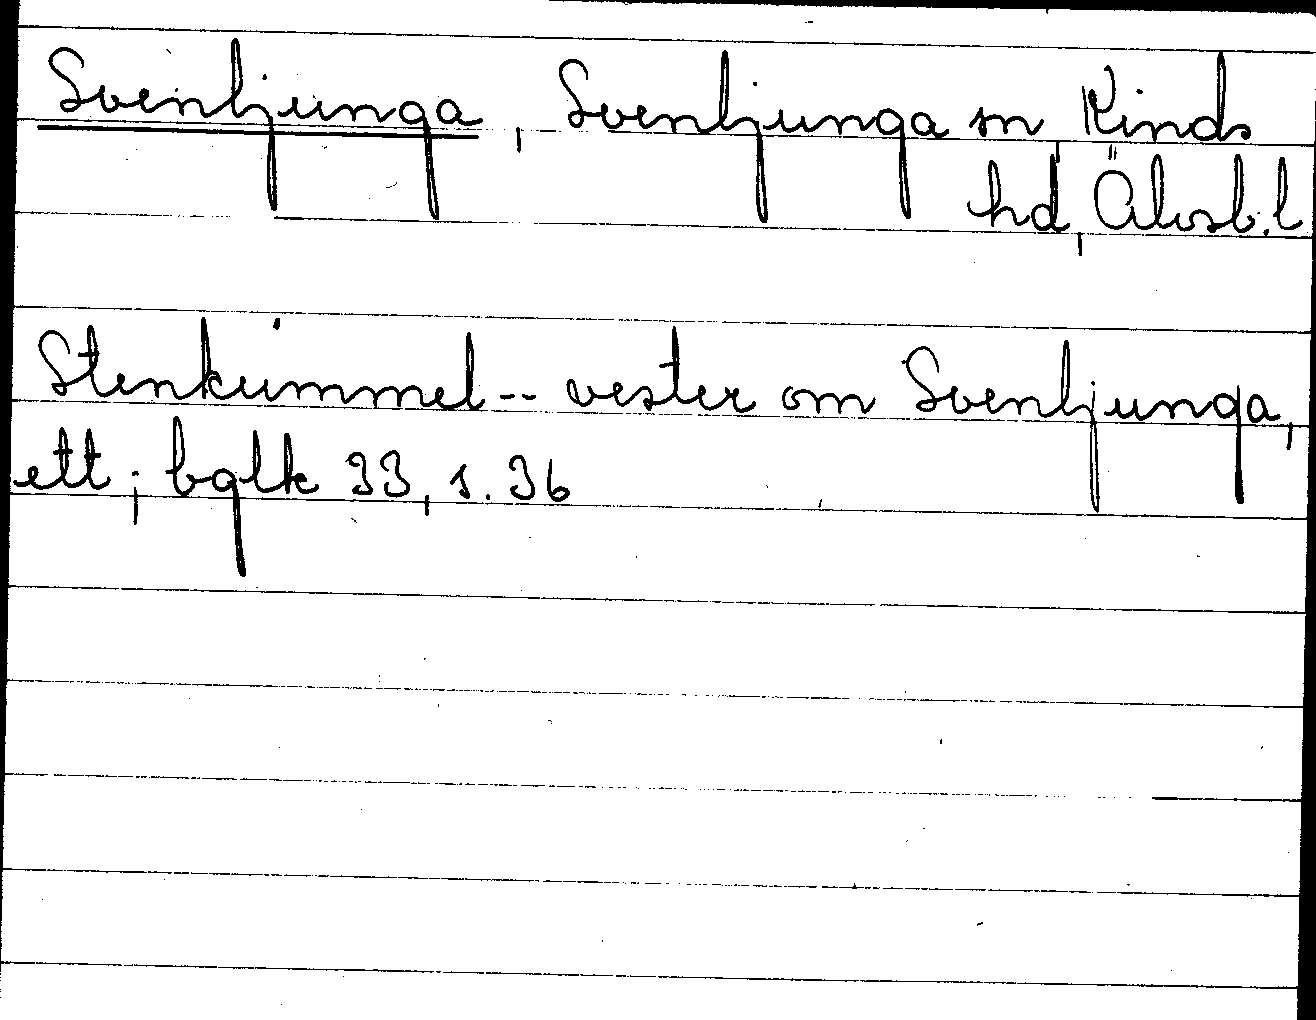 Svenljunga, Svenljunga sn Kinds
hd, Älvsb. l
Stenkummel -- vester om Svenljunga,
ett; bglk 33, s. 36